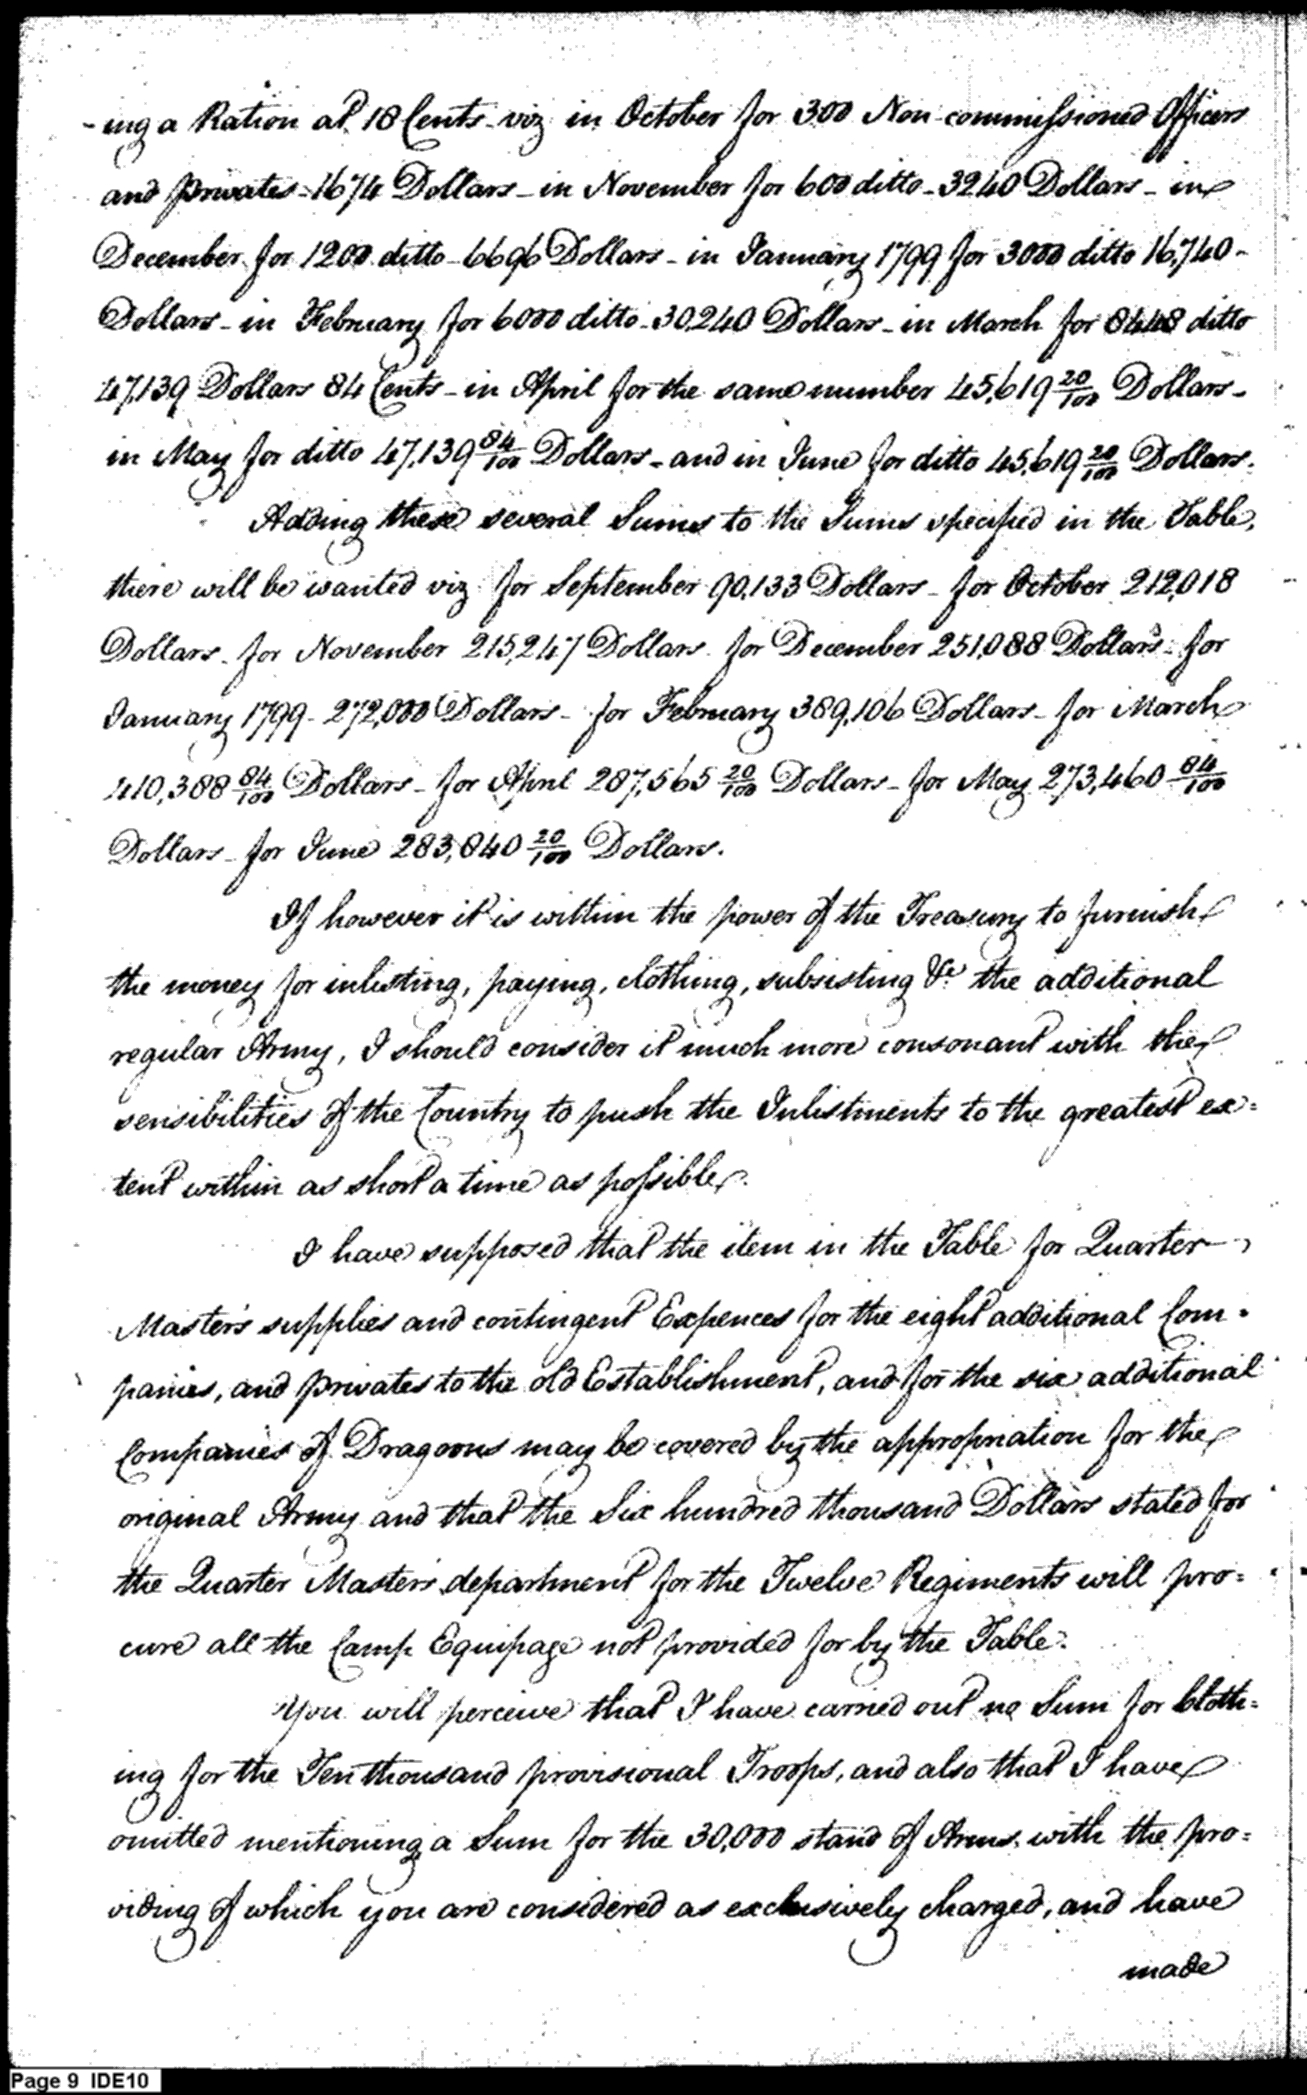 -ing a Ration at 18 Cents viz in October for 300 Non-commissioned Officers
and privates - 1674 Dollars - in November for 600 ditto - 3240 Dollars - in
December for 1200 ditto - 6696 Dollars - in January 1799 for 3000 ditto 16,740 -
Dollars - in February for 6000 ditto - 30,240 Dollars - in March for 8448 ditto
47,139 Dollars 84 Cents - in April for the same number 45,619 20/100 Dollars -
in May for ditto 47,139 84/100 Dollars - and in June for ditto 45,619 20/100 Dollars.
Adding these several Sums to the Sums specified in the Table,
there will be wanted viz for September 90,133 Dollars - for October 212,018
Dollars - for November 215,247 Dollars for December 251,088 Dollars - for
January 1799 - 272,000 Dollars - for February 389,106 Dollars - for March
410,388 84/100 Dollars - for April 287,565 20/100 Dollars - for May 273,460 84/100
Dollars - for June 283,840 20/100 Dollars.
If however it is within the power of the Treasury to furnish
the money for inlisting, paying, clothing, subsisting &c the additional
regular Army, I should consider it much more consonant with the
sensibilities of the Country to push the Inlistments to the greatest ex=
tent within as short a time as possible.
I have supposed that the item in the Table for Quarter
Master's supplies and contingent Expences for the eight additional Com=
panies, and privates to the old Establishment, and for the six additional
Companies of Dragoons may be covered by the appropriation for the
original Army and that the Six hundred thousand Dollars stated for
the Quarter Masters department for the Twelve Regiments will pro=
cure all the Camp Equipage not provided for by the Table.
You will perceive that I have carried out no Sum for Cloth=
ing for the Ten thousand provisional Troops, and also that I have
omitted mentioning a Sum for the 30,000 stand of Arms with the pro=
viding of which you are considered as exclusively charged, and have
made
Page 9 IDE10